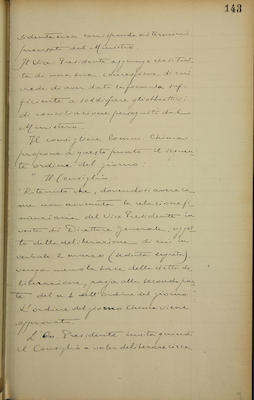 143
sidente non corrisponde ai termini
precisati dal Ministro.
Il Vice Presidente aggiunge che si trat-
ta di una sua concezione di cui
crede di aver dato la formula suf-
ficiente a soddisfare gli obbiettivi
di conciliazione perseguiti dal
Ministero.
Il consigliere Comm. Chiusa
propone a questo punto il seguen-
te ordine del giorno:
" Il Consiglio
Ritenuto che, dovendosi avere
me non avvenuta la relazione fi-
nanziaria del Vice Presidente in
veste di Direttore Generale, ogget-
to della deliberazione di cui in
verbale 2 marzo (seduta segreta)
venga meno la base della detta de-
liberazione, passa alla seconda par-
te del n. 1 dell'ordine del giorno"
L'ordine del giorno Chiusa viene
approvato.
L'On. Presidente invita quindi
il Consiglio a voler deliberare circa